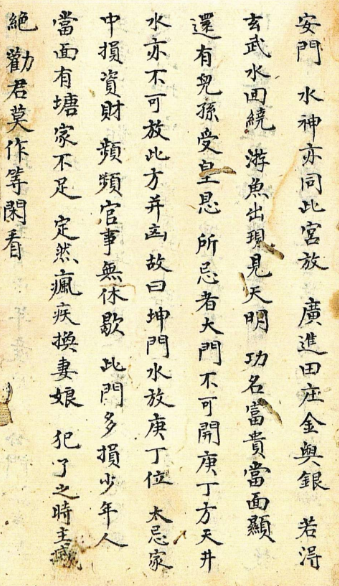 安門　水神亦同此宮放　廣進田庄金與銀　若淂
玄武水回繞　游魚出現見天明　功名富貴當面顯
還有兒孫受皇恩　所忌者大門不可開庚丁方天井
水亦不可放此方并出故曰坤門水放庚丁位　太忌家
中損資財　頻頻官事無休歇　此門多損少年人
當面有塘家不足　定然瘋疾換妻娘　犯了之時主
絕　勸君莫作等閑看